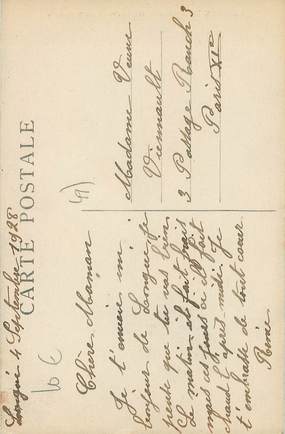 CARTE POSTALE
Longué 4 Septembre 1928
Chère Maman
Je t'envoie un
bonjour de Longué je
pense que tu vas bien
Le matin il fait frais
mais ces jours ci il fait
chaud l'après-midi. Je
t'embrasse de tout cœur
René
Madame Veuve
Viennault
3 Passage Rauch 3
Paris XIe
(49)
10 €